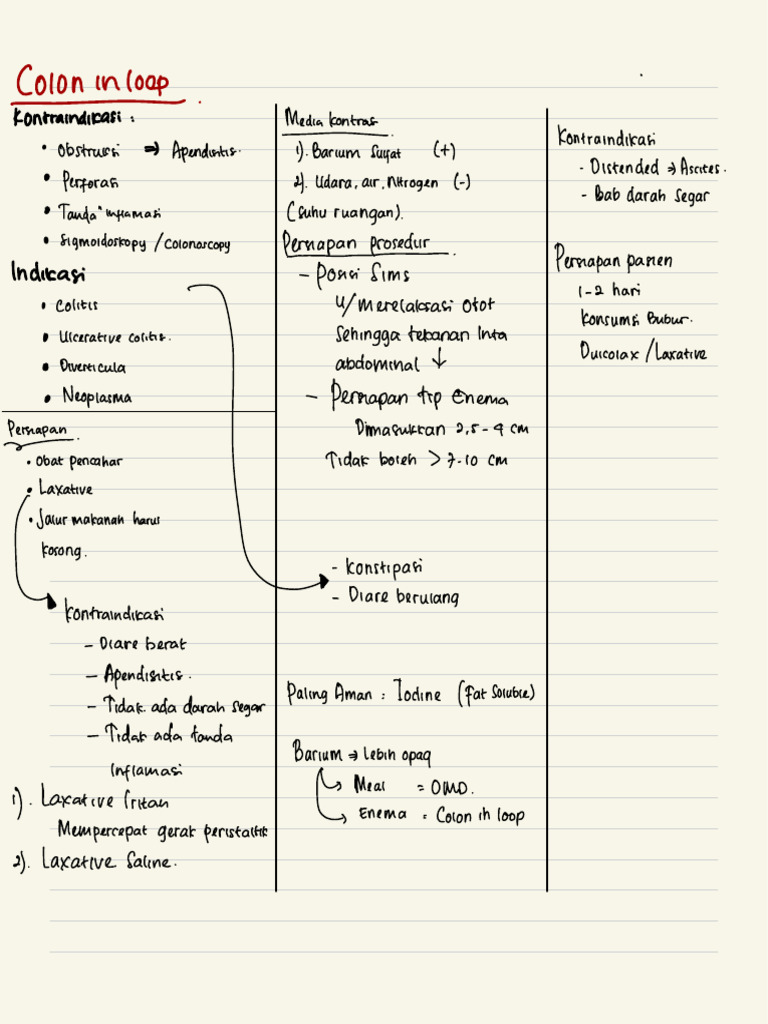 Colon in loop
Kontraindikasi :
• Obstruksi ⇒ Apendisitis.
• Perforasi
• Tanda" inflamasi
• Sigmoidoskopy / Colonoscopy
Indikasi
• Colitis
• Ulcerative colitis.
• Diverticula
• Neoplasma
Persiapan
• Obat pencahar
• Laxative
• Jalur makanan harus
kosong.
Kontraindikasi
- Diare berat
- Apendisitis.
- Tidak ada darah segar
- Tidak ada tanda
inflamasi
1). Laxative Iritan
Mempercepat gerak peristaltik
2). Laxative Saline.
Media kontras
1). Barium Sulfat (+)
2). Udara, air, Nitrogen (-)
(Suhu ruangan).
Persiapan prosedur
- Posisi Sims
u/ merelaksasi otot
sehingga tekanan inta
abdominal ↓
- Persiapan tip Enema
Dimasukkan 2,5-4 cm
Tidak boleh > 7-10 cm
- Konstipasi
- Diare berulang
Paling Aman : Iodine (Fat Soluble)
Barium ⇒ lebih opaq
→ Meal = OMD.
→ Enema = Colon in loop
Kontraindikasi
- Distended → Ascites.
- Bab darah segar
Persiapan pasien
1-2 hari
Konsumsi Bubur.
Dulcolax / Laxative